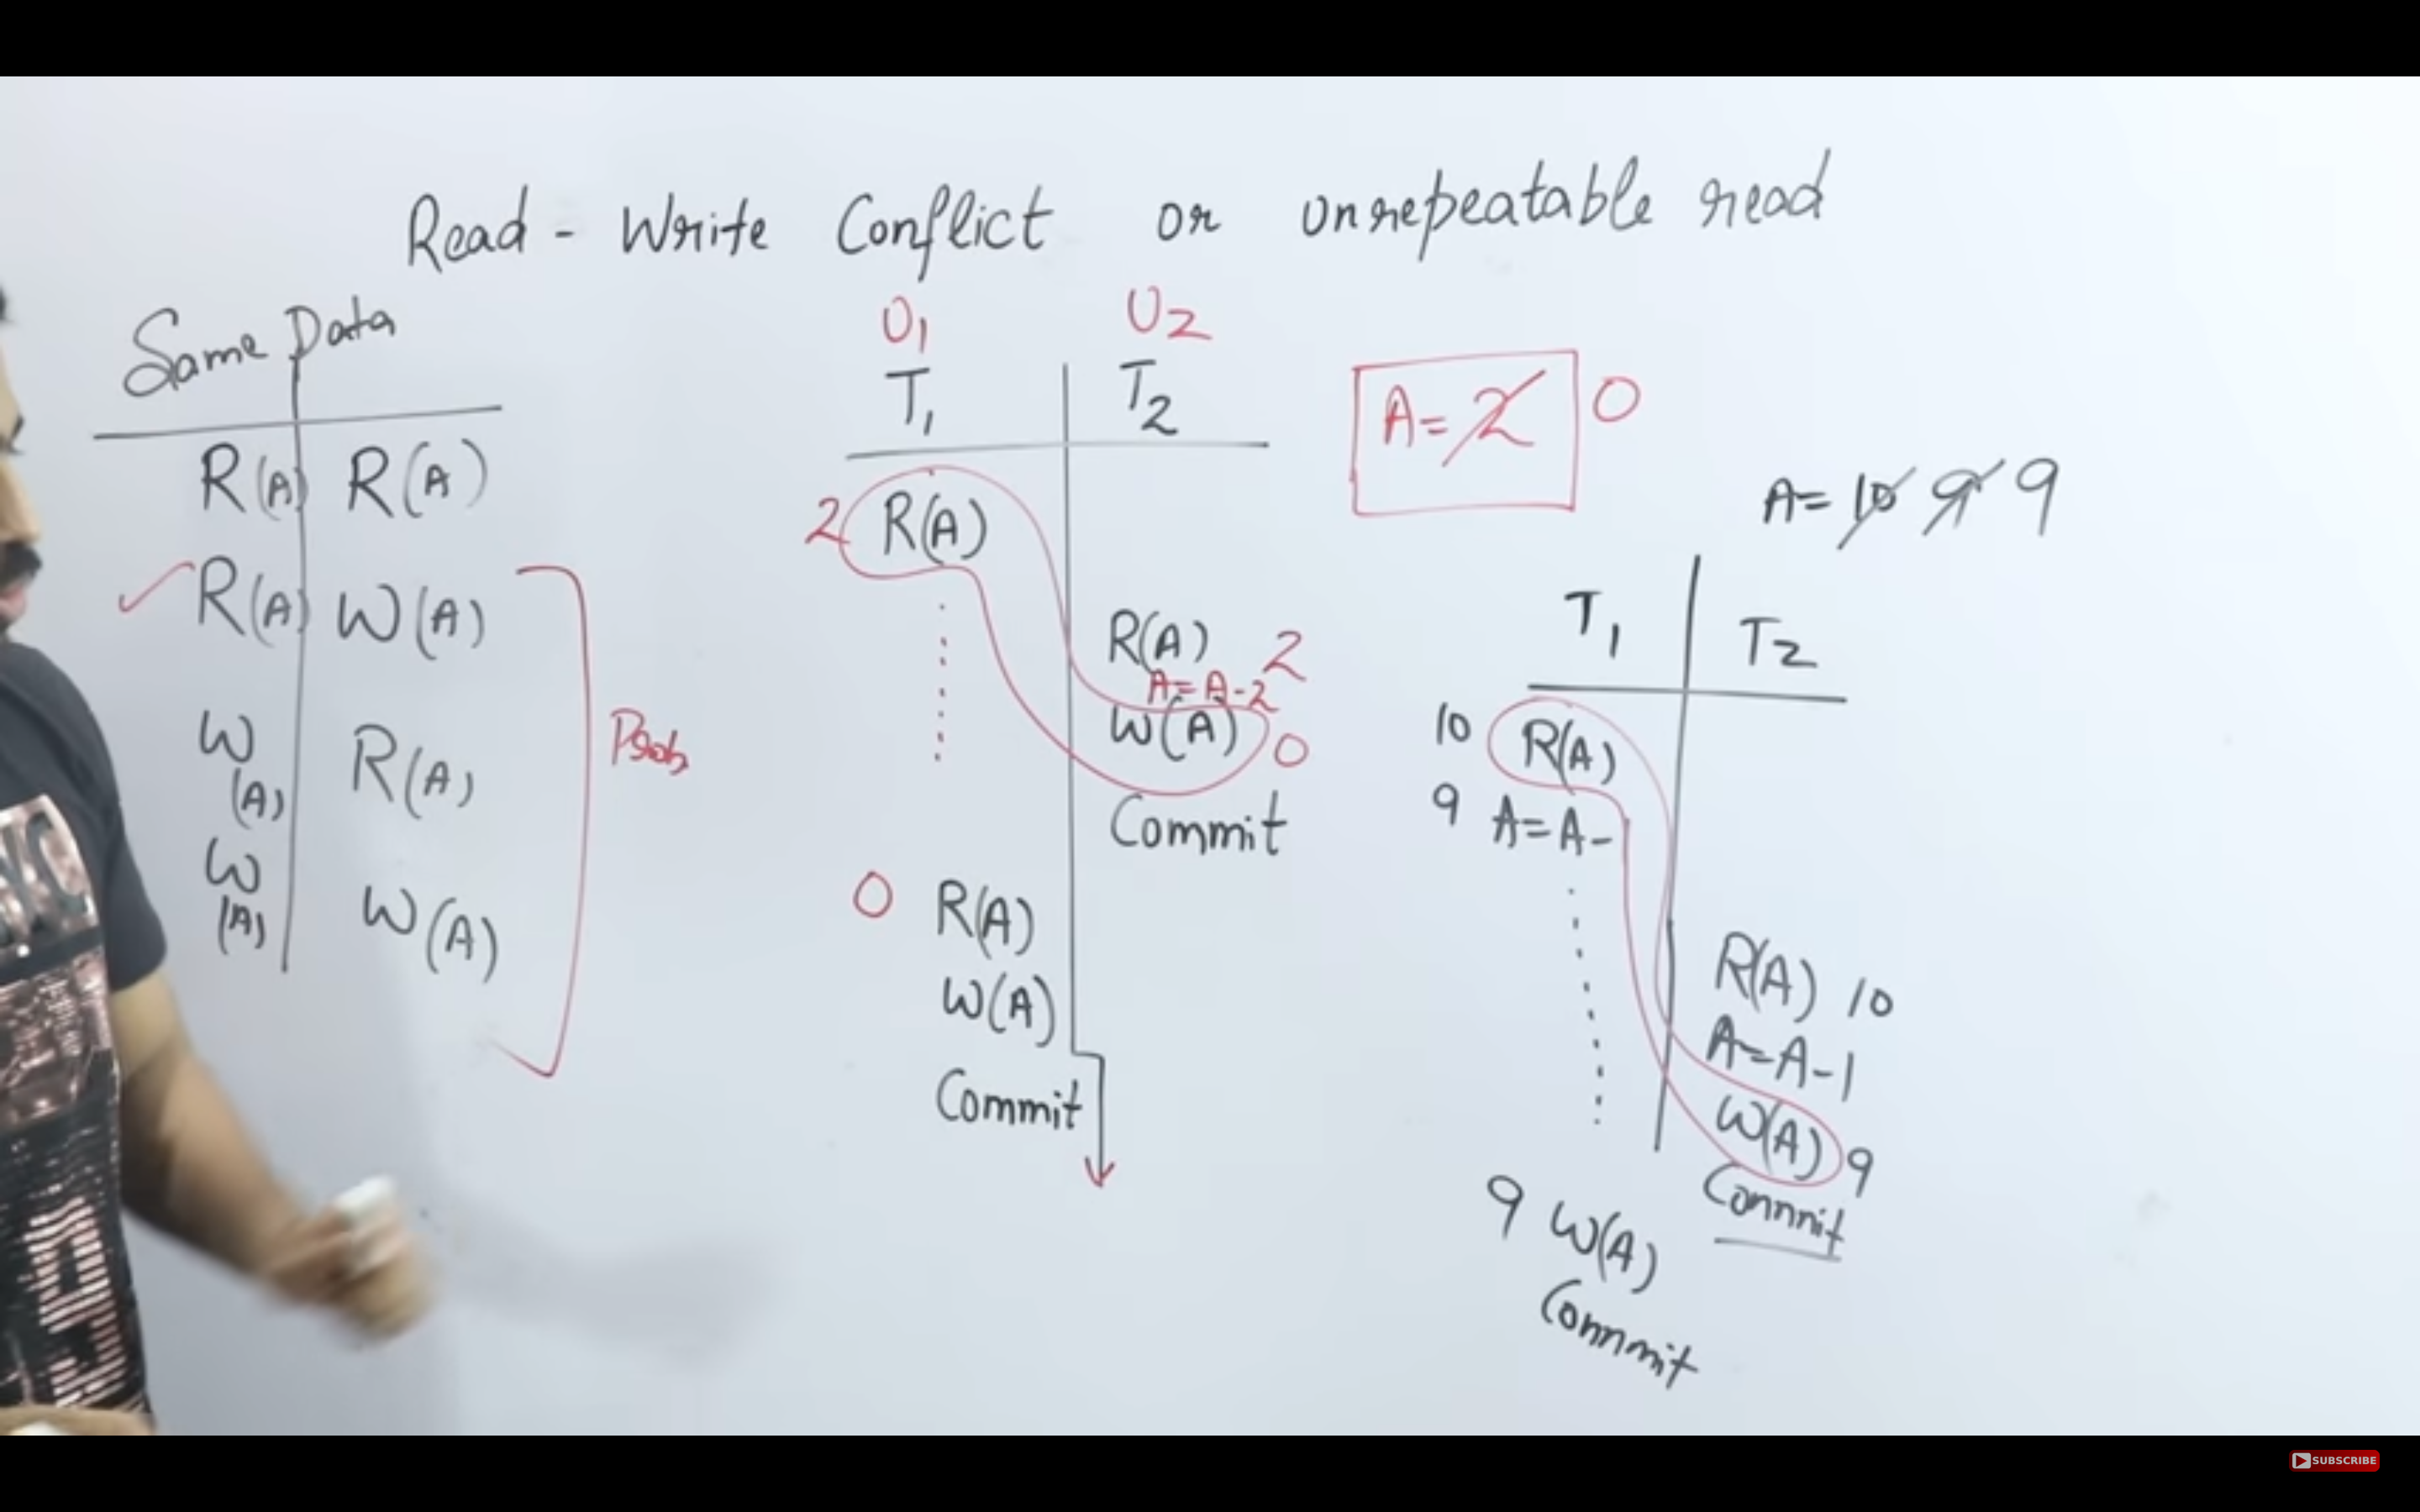 Read - Write Conflict or unrepeatable read
Same Data
R(A) R(A)
R(A) W(A)
W(A) R(A)
W(A) W(A)
Prob
U1 U2
T1 T2
2 R(A)
R(A) 2
A=A-2
W(A) 0
Commit
0 R(A)
W(A)
Commit
A=2 0
A= 10 9 9
T1 T2
10 R(A)
9 A=A-
R(A) 10
A=A-1
W(A) 9
Commit
9 W(A)
Commit
SUBSCRIBE